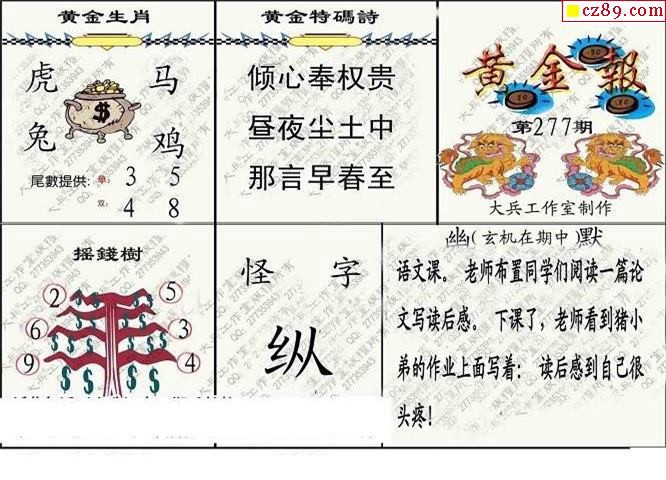 cz89.com
黄金生肖
虎 马
兔 鸡
$
尾數提供: 单: 3 5
双: 4 8
黄金特碼詩
倾心奉权贵
昼夜尘土中
那言早春至
黄金報
第277期
大兵工作室制作
摇錢樹
2 5
6 3
9 4
怪 字
纵
幽(玄机在期中)默
语文课。 老师布置同学们阅读一篇论
文写读后感。 下课了，老师看到猪小
弟的作业上面写着： 读后感到自己很
头疼!